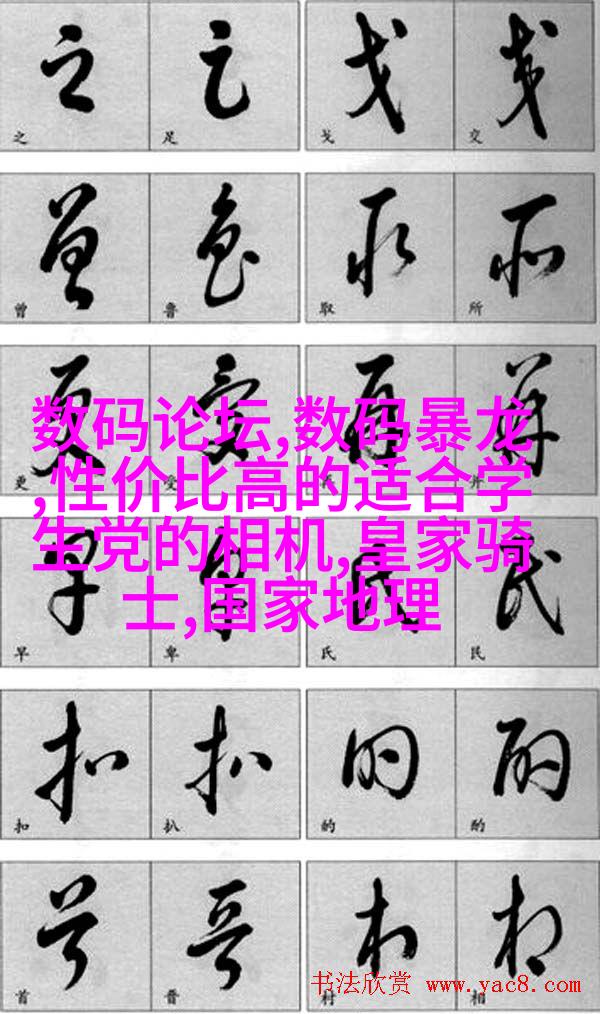 之 足 戈 交
曾 鲁 取 所
更 受 并
数码论坛,数码暴龙
,性价比高的适合学
生党的相机,皇家骑
士,国家地理
早 卑 氏 民
扣 扒 的 酌
首 晋 村 相
书法欣赏 www.yac8.com